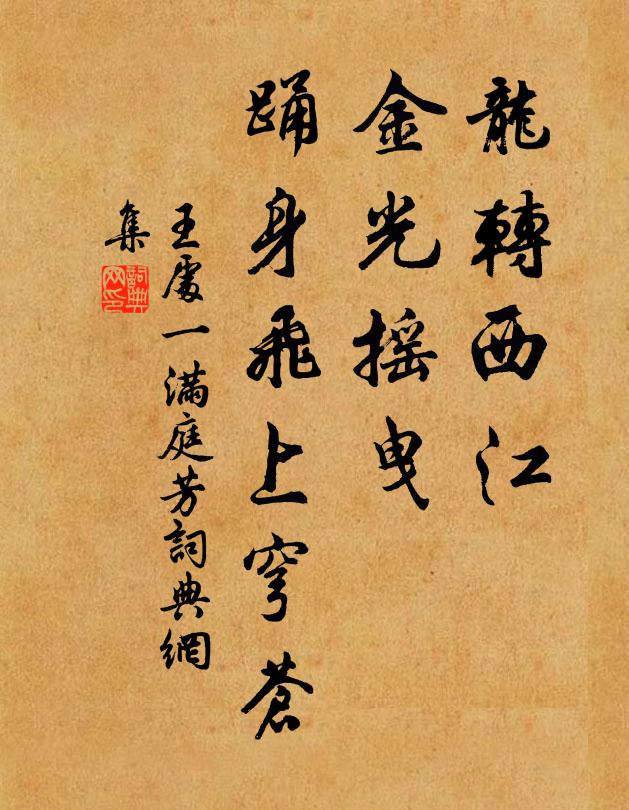 龍轉西江
金光摇曳
踊身飛上穹蒼
王處一滿庭芳詞典網
集
詞典網印